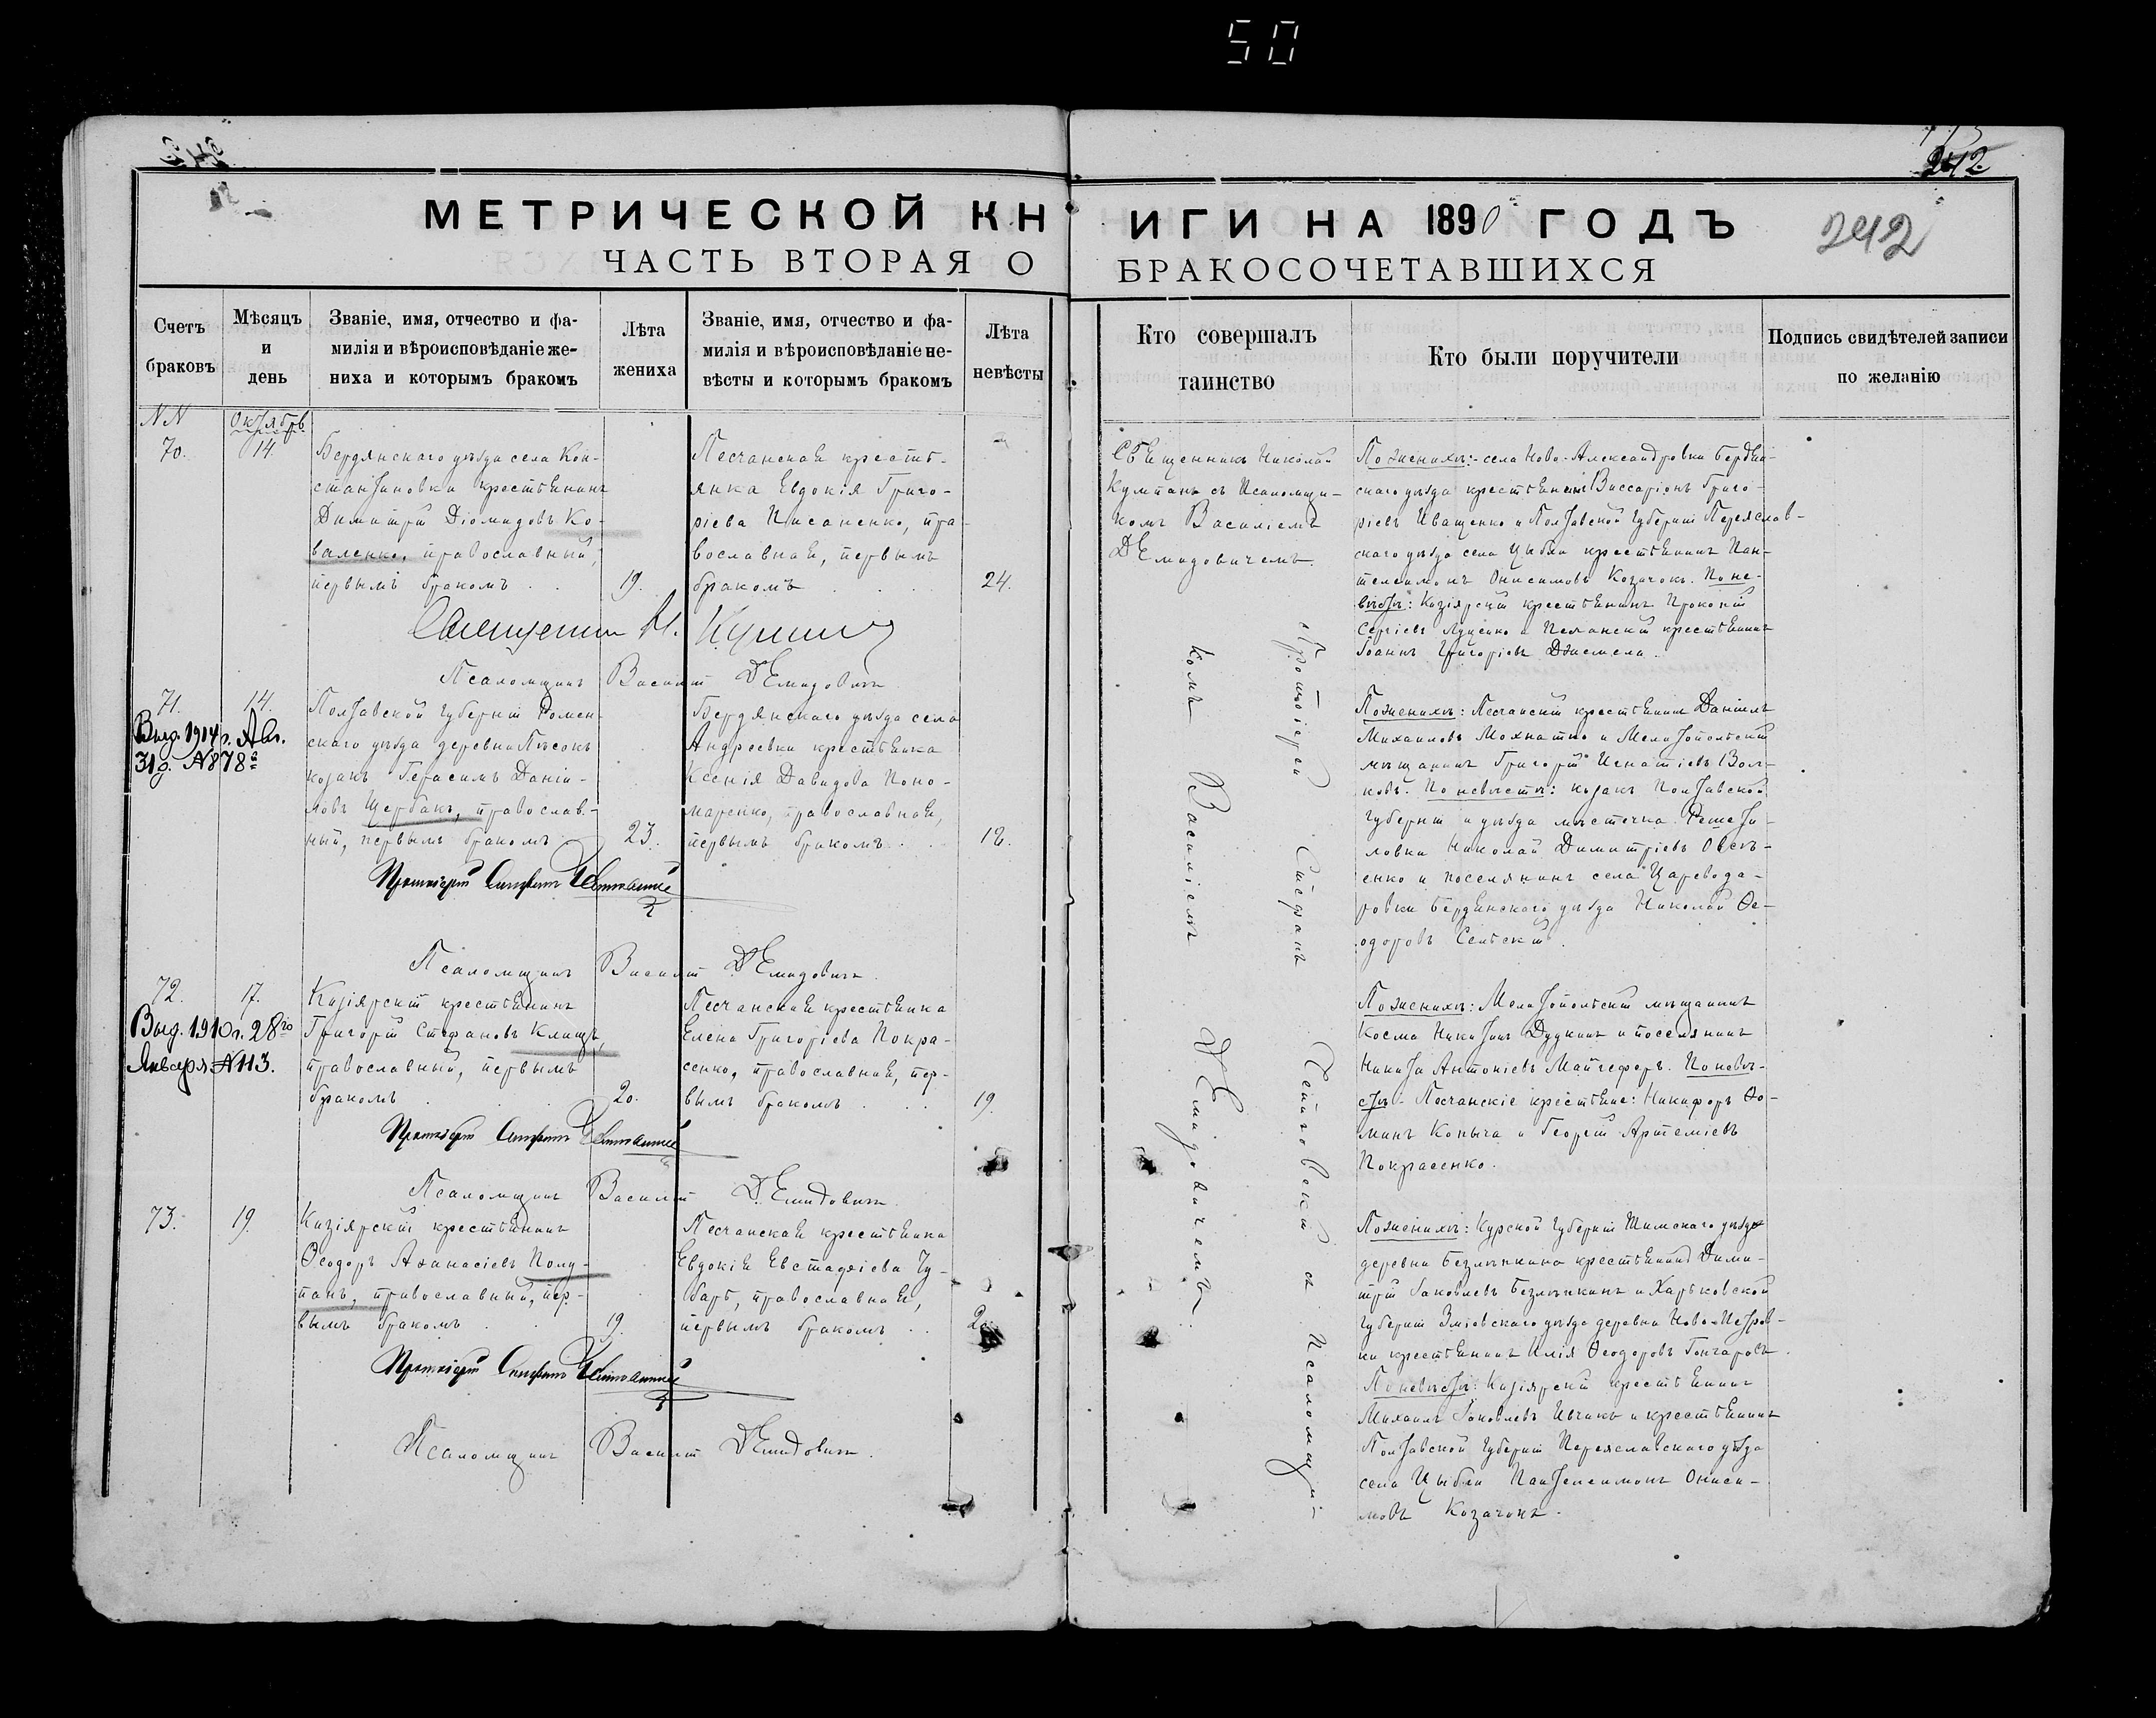 50
242
МЕТРИЧЕСКОЙ КН
ИГИ НА 1890 ГОДЪ
242
ЧАСТЬ ВТОРАЯ О
БРАКОСОЧЕТАВШИХСЯ
Счетъ
браковъ
Мѣсяцъ
и
день
Званіе, имя, отчество и фа-
милія и вѣроисповѣданіе же-
ниха и которымъ бракомъ
Лѣта
жениха
Званіе, имя, отчество и фа-
милія и вѣроисповѣданіе не-
вѣсты и которымъ бракомъ
Лѣта
невѣсты
Кто совершалъ
таинство
Кто были поручители
Подпись свидѣтелей записи
по желанію
NN
Октябрь
70.
14.
Бердянскаго уѣзда села Кон-
стантиновки крестьянинъ
Димитрій Діомидовъ Ко-
валенко, православный,
первымъ бракомъ
19.
Песчанская крестьян-
янка Евдокія Григо-
ріева Писаненко, пра-
вославная, первымъ
бракомъ
24.
Священникъ Н.
Псаломщикъ Василій Демидовичъ
Священникъ Николай
съ Псаломщи-
комъ Василіемъ
Демидовичемъ.
По женихѣ: села Ново-Александровки Бердян-
скаго уѣзда крестьянинъ Виссаріонъ Григо-
ріевъ Иващенко и Полтавской губерніи Переяслав-
скаго уѣзда села Цыбли крестьянинъ Пан-
телеимонъ Онисимовъ Козачокъ. По не-
вѣстѣ: Кизіярскій крестьянинъ Прокопій
Сергіевъ Луценко и Песчанскій крестьянинъ
Іоаннъ Григоріевъ
71.
14.
Выд. 1914 г. Авг.
31 д. №878
Полтавской губерніи Ромен-
скаго уѣзда деревни Пѣсокъ
козакъ Герасимъ Даніи-
ловъ Щербакъ, православ-
ный, первымъ бракомъ
23.
Бердянскаго уѣзда села
Андреевки крестьянка
Ксенія Давидова Поно-
маренко, православная,
первымъ бракомъ
18.
Протоіерей Стефанъ
Псаломщикъ Василій Демидовичъ
По женихѣ: Песчанскій крестьянинъ Даніилъ
Михаиловъ Мохнатко и Мелитопольскій
мѣщанинъ Григорій Игнатіевъ Вол-
ковъ. По невѣстѣ: козакъ Полтавской
губерніи и уѣзда мѣстечка Решети-
ловки Николай Димитріевъ Овсѣ-
енко и поселянинъ села Царевода-
ровки Бердянскаго уѣзда Николай Ѳе-
одоровъ
72.
17.
Выд. 1910 г. 28го
Января №113.
Кизіярскій крестьянинъ
Григорій Стефановъ Клищъ,
православный, первымъ
бракомъ
20.
Песчанская крестьянка
Елена Григоріева Покра-
сенко, православная, пер-
вымъ бракомъ
19.
Протоіерей Стефанъ
Псаломщикъ Василій Демидовичъ
По женихѣ: Мелитопольскій мѣщанинъ
Косма Никитинъ Дудкинъ и поселянинъ
Никита Антоніевъ По невѣ-
стѣ: Песчанскіе крестьяне: Никифоръ Ѳо-
минъ Копыча и Георгій Артеміевъ
Покрасенко.
73.
19.
Кизіярскій крестьянинъ
Ѳеодоръ Аѳанасіевъ Полу-
панъ, православный, пер-
вымъ бракомъ
19.
Песчанская крестьянка
Евдокія Евстафіева Чу-
барь, православная,
первымъ бракомъ
Протоіерей Стефанъ
Псаломщикъ Василій Демидовичъ
Протоіерей Стефанъ съ Псаломщи-
комъ Василіемъ Демидовичемъ.
По женихѣ: Курской губерніи Тимскаго уѣзда
деревни Безлѣпкина крестьянинъ Дими-
трій Іаковлевъ Безлѣпкинъ и Харьковской
губерніи Зміевскаго уѣзда деревни Ново-Петров-
ки крестьянинъ Илія Ѳеодоровъ Гончаровъ.
По невѣстѣ: Кизіярскій крестьянинъ
Михаилъ Іаковлевъ Ивчикъ и крестьянинъ
Полтавской губерніи Переяславскаго уѣзда
села Цыбли Пантелеимонъ Ониси-
мовъ Козачокъ.